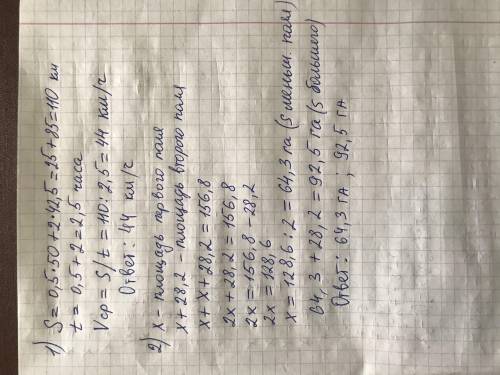 1) S = 0,5·50 + 2·42,5 = 25 + 85 = 110 км
t = 0,5 + 2 = 2,5 часа
Vср = S/t = 110 : 2,5 = 44 км/ч
Ответ: 44 км/ч
2) x - площадь первого поля
x + 28,2 - площадь второго поля
x + x + 28,2 = 156,8
2x + 28,2 = 156,8
2x = 156,8 - 28,2
2x = 128,6
x = 128,6 : 2 = 64,3 га (S меньш. поля)
64,3 + 28,2 = 92,5 га (S большого)
Ответ: 64,3 га ; 92,5 га